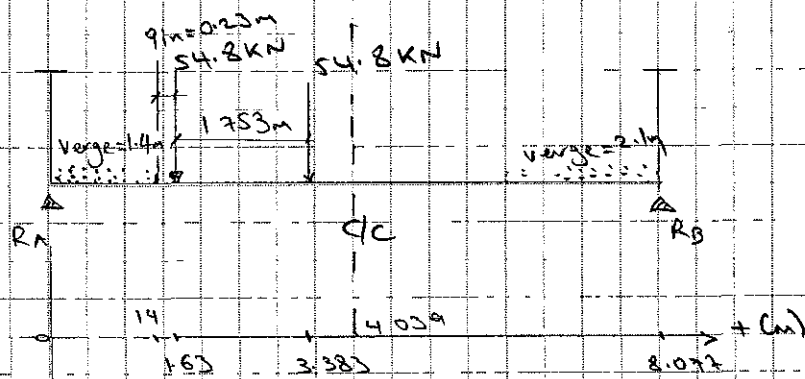 9in=0.23m
54.8KN
54.8KN
1.753m
Verge=1.4m
verge=2.1m
RA
C/C
RB
14
4.039
+ (m)
0
1.63
3.383
8.077